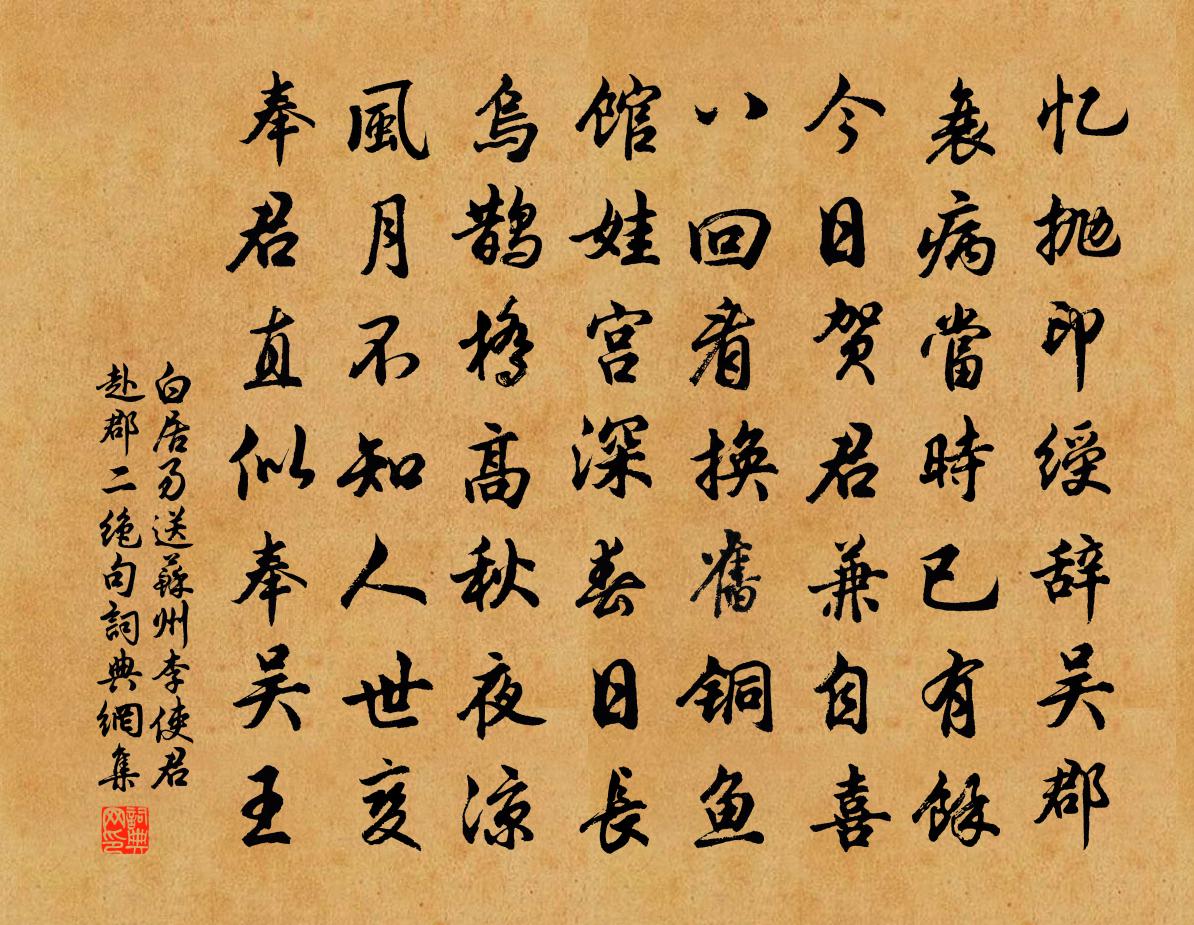 忆抛印绶辞吴郡
衰病當時已有餘
今日贺君兼自喜
八回看换舊铜鱼
馆娃宫深春日長
烏鹊橋高秋夜凉
風月不知人世变
奉君直似奉吴王
白居易送蘇州李使君
赴郡二绝句詞典網集
詞典网印